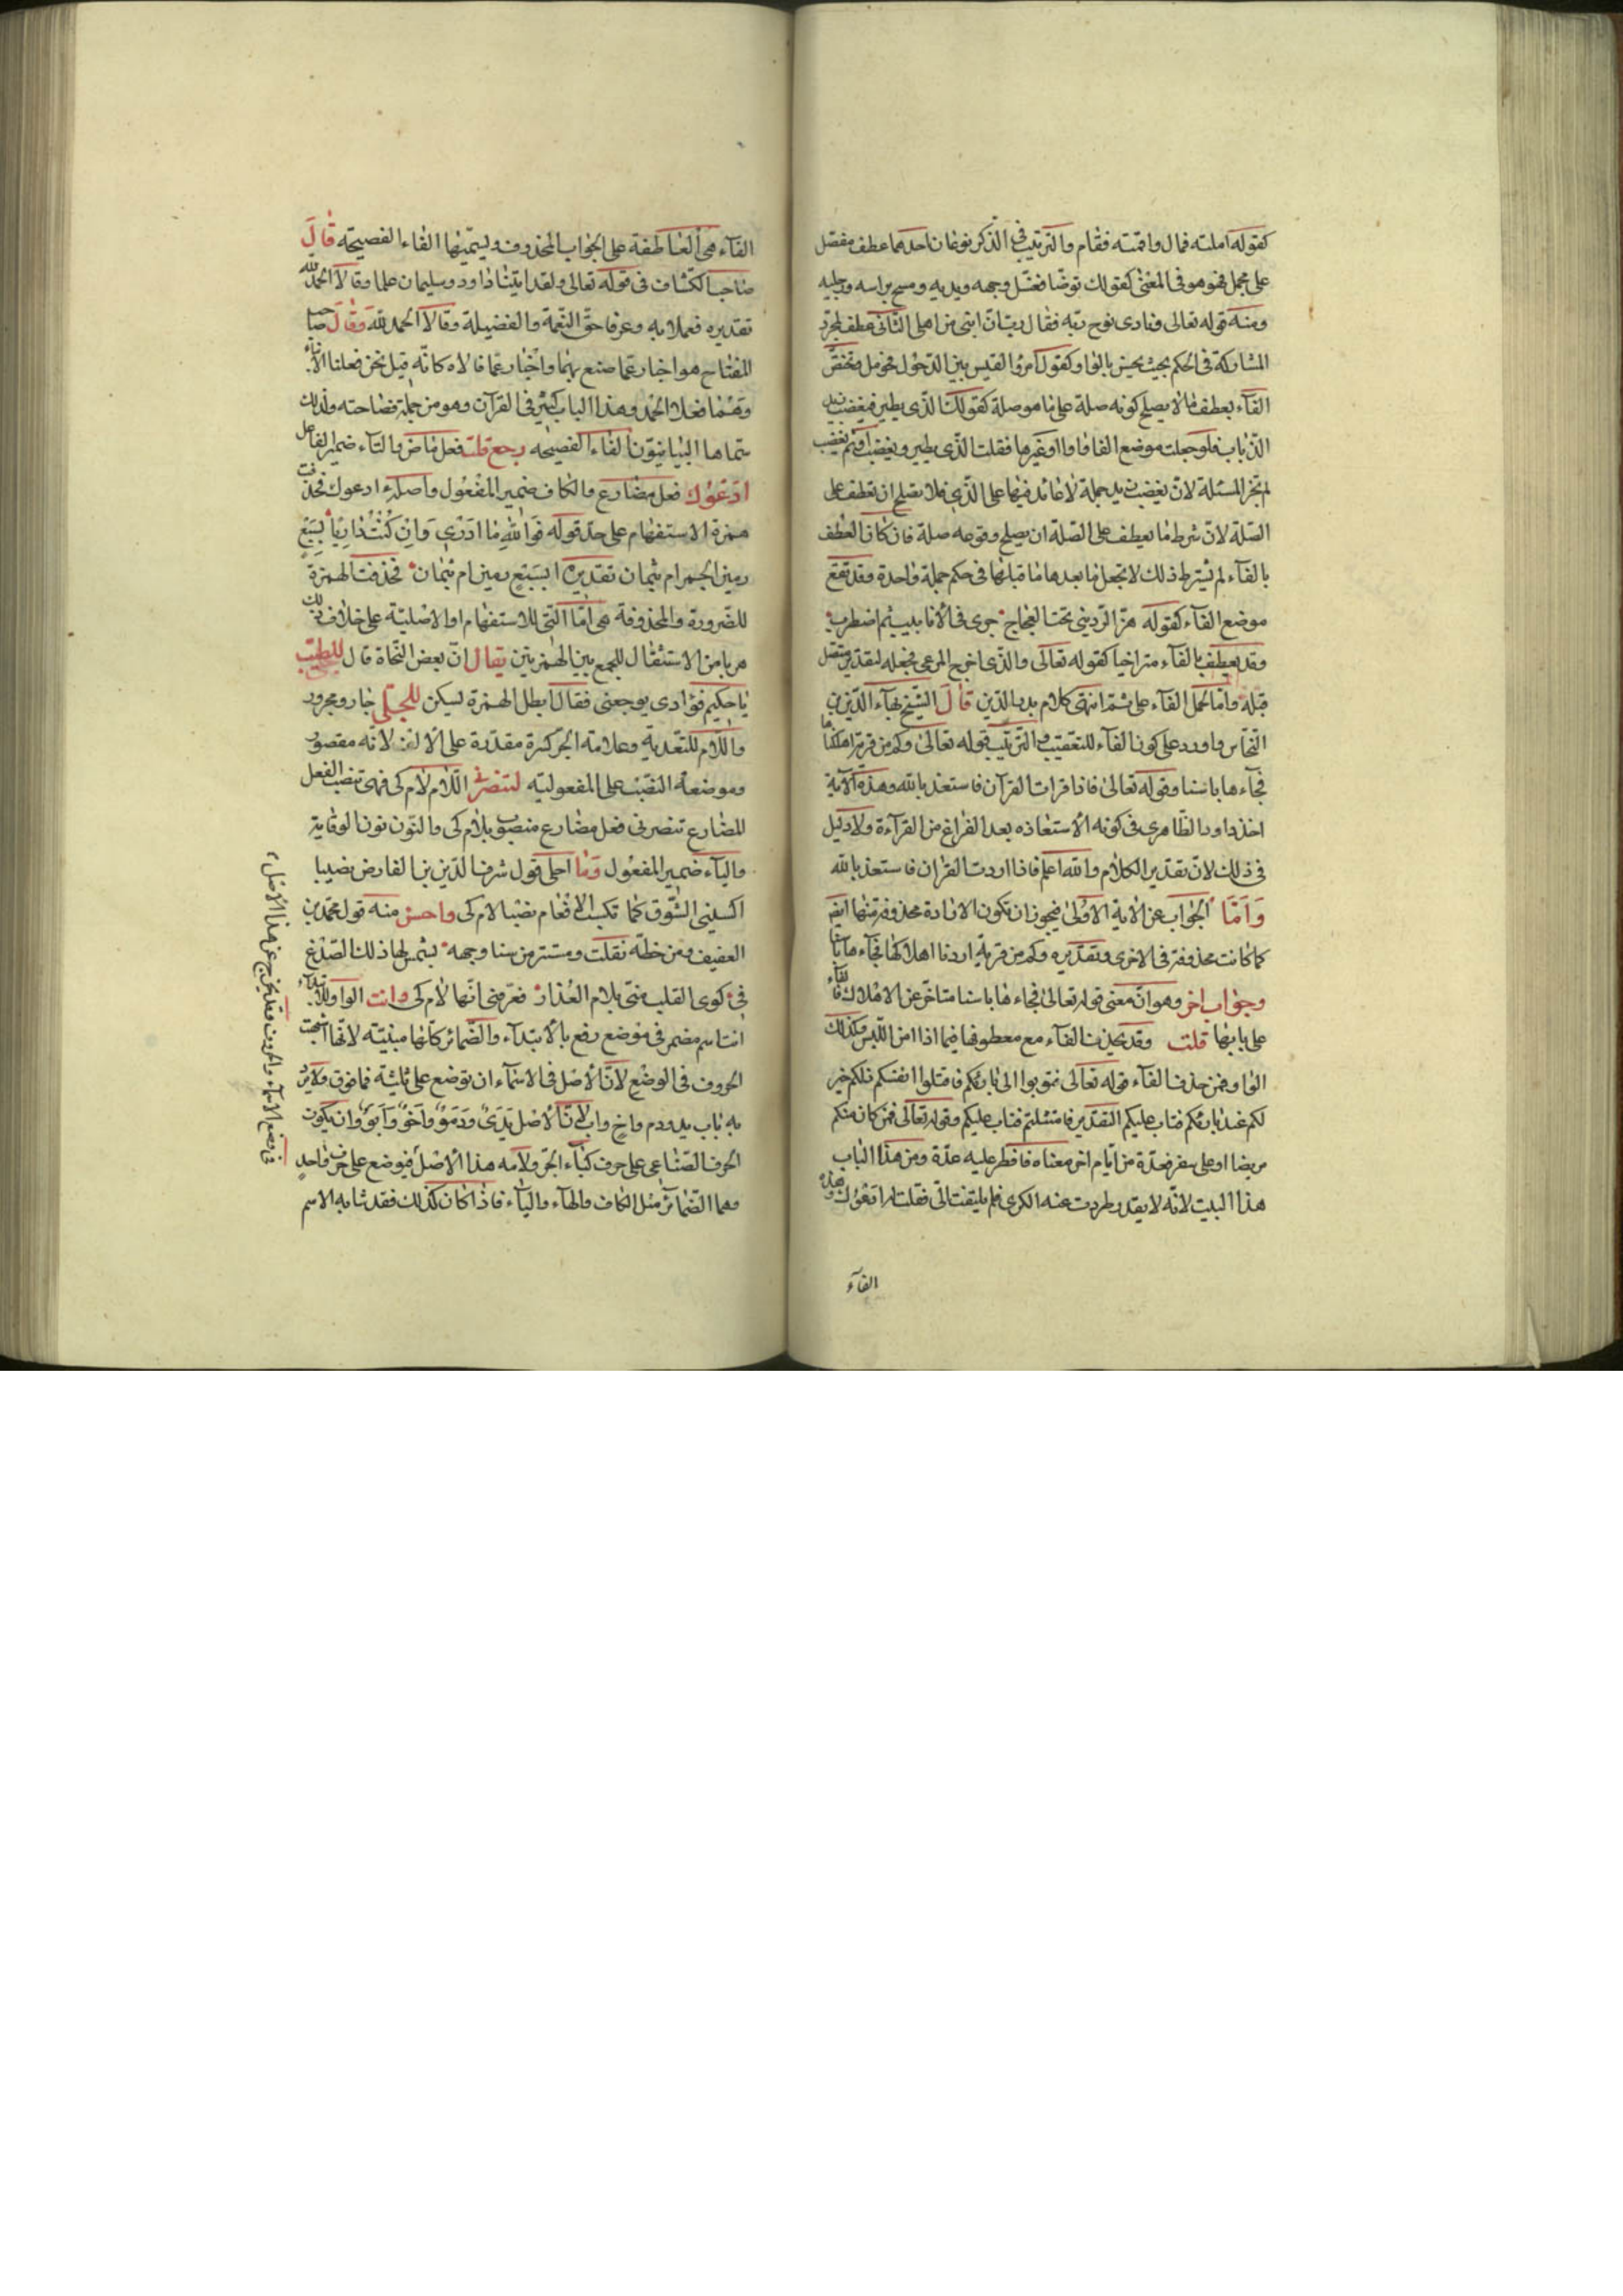 كقوله املته فمال واقمته فقام والترتيب فى الذكر نوعان احدهما عطف مفصّل
على مجمل فهو هو فى المعنى كقولك توضّا فغسل وجهه ويديه ومسح براسه ورجليه
ومنه قوله تعالى ونادى نوح ربّه فقال ربّ انّ ابنى من اهلى الثّانى عطف لمجرّد
المشاركة فى الحكم بحيث يحسن بالواو كقول امرؤ القيس بين الدّخول فحومل وتختصّ
الفآء بعطف ما لا يصلح كونه صلة على ما هو صلة كقولك الّذى يطير فيغضب زيد
الذّباب فلو جعلت موضع الفا واوا او غيرها فقلت الّذى يطير ويغضب او ثم يغضب
لم تجز المسئلة لانّ يغضب زيد جملة لا عائد فيها على الّذى فلا يصلح ان تعطف على
الصّلة لانّ شرط ما يعطف على الصّلة ان يصلح وقوعه صلة فان كان العطف
بالفآء لم يشترط ذلك لانّها تجعل ما بعدها مع ما قبلها فى حكم جملة واحدة وقد تقع
موضع الفآء كقوله هزّ الرّدينى تحت العجاج جرى فى الانابيب ثم اضطرب
وقد يعطف بالفآء متراخيا كقوله تعالى والّذى اخرج المرعى فجعله لتقدير متّصل
قبله وامّا لحمل الفآء على ثمّ انتهى كلام بدر الدّين قال الشّيخ بهآء الدّين بن
النّحاس واورد على كون الفآء للتعقيب والترتيب قوله تعالى وكم من قرية اهلكناها
فجآءها باسنا وقوله تعالى فاذا قرات القرآن فاستعذ بالله وهذه الآية
اخذ داود الظّاهرى فى كونه الاستعاذه بعد الفراغ من القرآءة ولا دليل
فى ذلك لانّ تقدير الكلام والله اعلم فاذا اردت القرآن فاستعذ بالله
وَامّا الجواب عن الآية الاولى فيجوز ان تكون الارادة محذوفة منها ايضا
كما كانت محذوفة فى الاخرى وتقديره وكم من قرية اردنا اهلاكها فجآءها باسنا
وجواب اخر وهو انّ معنى قوله تعالى فجاءها باسنا متاخّر عن الاهلاك فالفآء
على بابها قلت وقد تحذف الفآء مع معطوفها فيما اذا امن اللّبس وكذلك
الواو فمن حذف الفآء قوله تعالى فتوبوا الى بارئكم فاقتلوا انفسكم ذلكم خير
لكم عند بارئكم فتاب عليكم التقدير فامتثلتم فتاب عليكم وقوله تعالى فمن كان منكم
مريضا او على سفر فعدّة من ايّام اخر معناه فافطر عليه عدّة ومن هذا الباب
هذا البيت لانّه لا يقدّر طردت عنه الكرى فلم يلتفت الىّ فقلت له ادعوك وهذه
الفآء
الفآء هى العاطفة على الجواب المحذوف ويسمّيها الفاء الفصيحة قال
صاحب الكشّاف فى قوله تعالى ولقد اتينا داود وسليمان علما وقالا الحمد لله
تقديره فعملا به وعرفا حقّ النّعمة والفضيلة وقالا الحمد لله وقال صاحب
المفتاح هو اخبار عمّا صنع بهما واخبار عمّا قالاه كانّه قيل نحن فعلنا الايتاء
وهما فعلا الحمد وهذا الباب كثير فى القرآن وهو من جملة فصاحته ولذلك
سمّاها البيانيّون الفاء الفصيحه رجع قلت فعل ماض والتآء ضمير الفاعل
ادعوك فعل مضارع والكاف ضمير المفعول واصله ءادعوك فحذفت
همزة الاستفهام على حدّ قوله فَوَالله مَا ادْرى وَاِنْ كُنْتُ دَارِيًا بِسَبْعٍ
رمين الجمر ام بثمان تقديره ابسبع رمين ام بثمان فحذفت الهمزة
للضّرورة والمحذوفة هى امّا الّتى للاستفهام او الاصليّة على خلاف ذلك
هربا من الاستثقال للجمع بين الهمزتين يقال انّ بعض النّحاة قال للطبيب
يا حكيم فؤادى يوجعنى فقال ابطل الهمزة ليسكن للجلّى جار ومجرور
واللّام للتّعدية وعلامة الجر كسرة مقدّرة على الالف لانّه مقصور
وموضعه النّصب على المفعوليّه لتنصرنى اللّام لام كى فهى تنصب الفعل
المضارع تنصرنى فعل مضارع منصوب بلام كى والنّون نون الوقاية
واليآء ضمير المفعول وما احلى قول شرف الدّين بن الفارض نصيبا
اكسبنى الشّوق كما تكسب الافعام نصبا لام كى واحسن منه قول محمّد بن
العفيف ومن خطّه نقلت ومستتر من سنا وجهه بشمس لها ذلك الصّدغ
فى كوى القلب منّى بلام العذار فعرّفنى انّها لام كى وانت الواو للابتدآء
انت اسم مضمر فى موضع رفع بالابتدآء والضّمائر كلّها مبنيّة لانّها اشبهت
الحروف فى الوضع لانّ الاصل فى الاسمآء ان توضع على ثلثة فما فوق ولا يرد
به باب يد ودم واخ واب لانّ الاصل يَدَىٌ ودَمَوٌ واَخَوٌ واَبَوٌ وان يكون
الحرف الصّناعى على حرف كبآء الجرّ ولامه هذا الاصل فيوضع على حرف واحد
وهما الضّمائر مثل الكاف والهآء واليآء فاذا كان كذلك فقد شابه الاسم
فى وضع الاسمآء والحروف فقد يخرج عن هذا الاصل